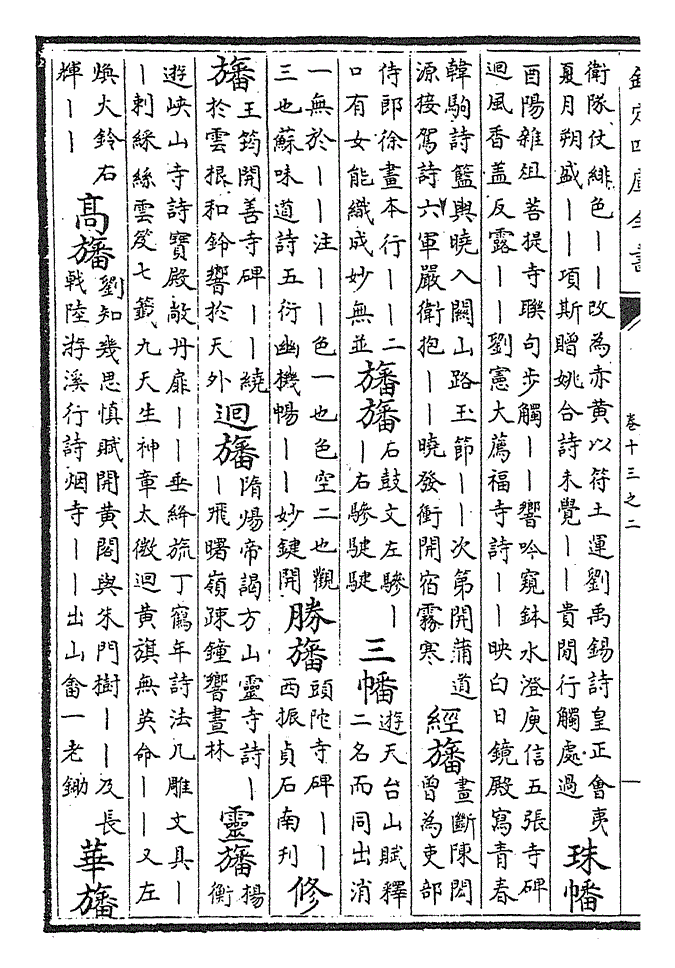 欽定四庫全書
卷十三之二
一
衛隊仗緋色――改為赤黄以符土運劉禹錫詩皇正會夷
夏月朔盛――項斯贈姚合詩未覺――貴閒行觸處過
珠幡
酉陽雜俎菩提寺聯句步觸――響吟窺鉢水澄庾信五張寺碑
迴風香盖反露――劉憲大薦福寺詩――映白日鏡殿寫青春
韓駒詩籃輿曉入闗山路玉節――次第開蒲道
源接駕詩六軍嚴衛抱――曉發衝開宿霧寒
經旛
畫斷陳閎
曾為吏部
侍郎徐畫本行――二
口有女能織成妙無並
旛旛
石鼓文左驂―
―右驂駛駛
三幡
遊天台山賦釋
二名而同出消
一無於――注――色一也色空二也觀
三也蘇味道詩五衍幽機暢――妙鍵開
勝旛
頭陀寺碑――
西振貞石南刋
修
旛
王筠開善寺碑――繞
於雲根和鈴響於天外
迴旛
隋煬帝謁方山靈寺詩―
―飛曙嶺疎鐘響晝林
靈旛
楊
衡
遊峽山寺詩寶殿敞丹扉――垂絳旒丁鶴年詩法几雕文具―
―刺綵絲雲笈七籖九天生神章太微迴黄旗無英命――又左
煥火鈴右
輝――
高旛
劉知幾思慎賦開黄閣與朱門樹――及長
戟陸游溪行詩烟寺――出山畬一老鋤
華旛